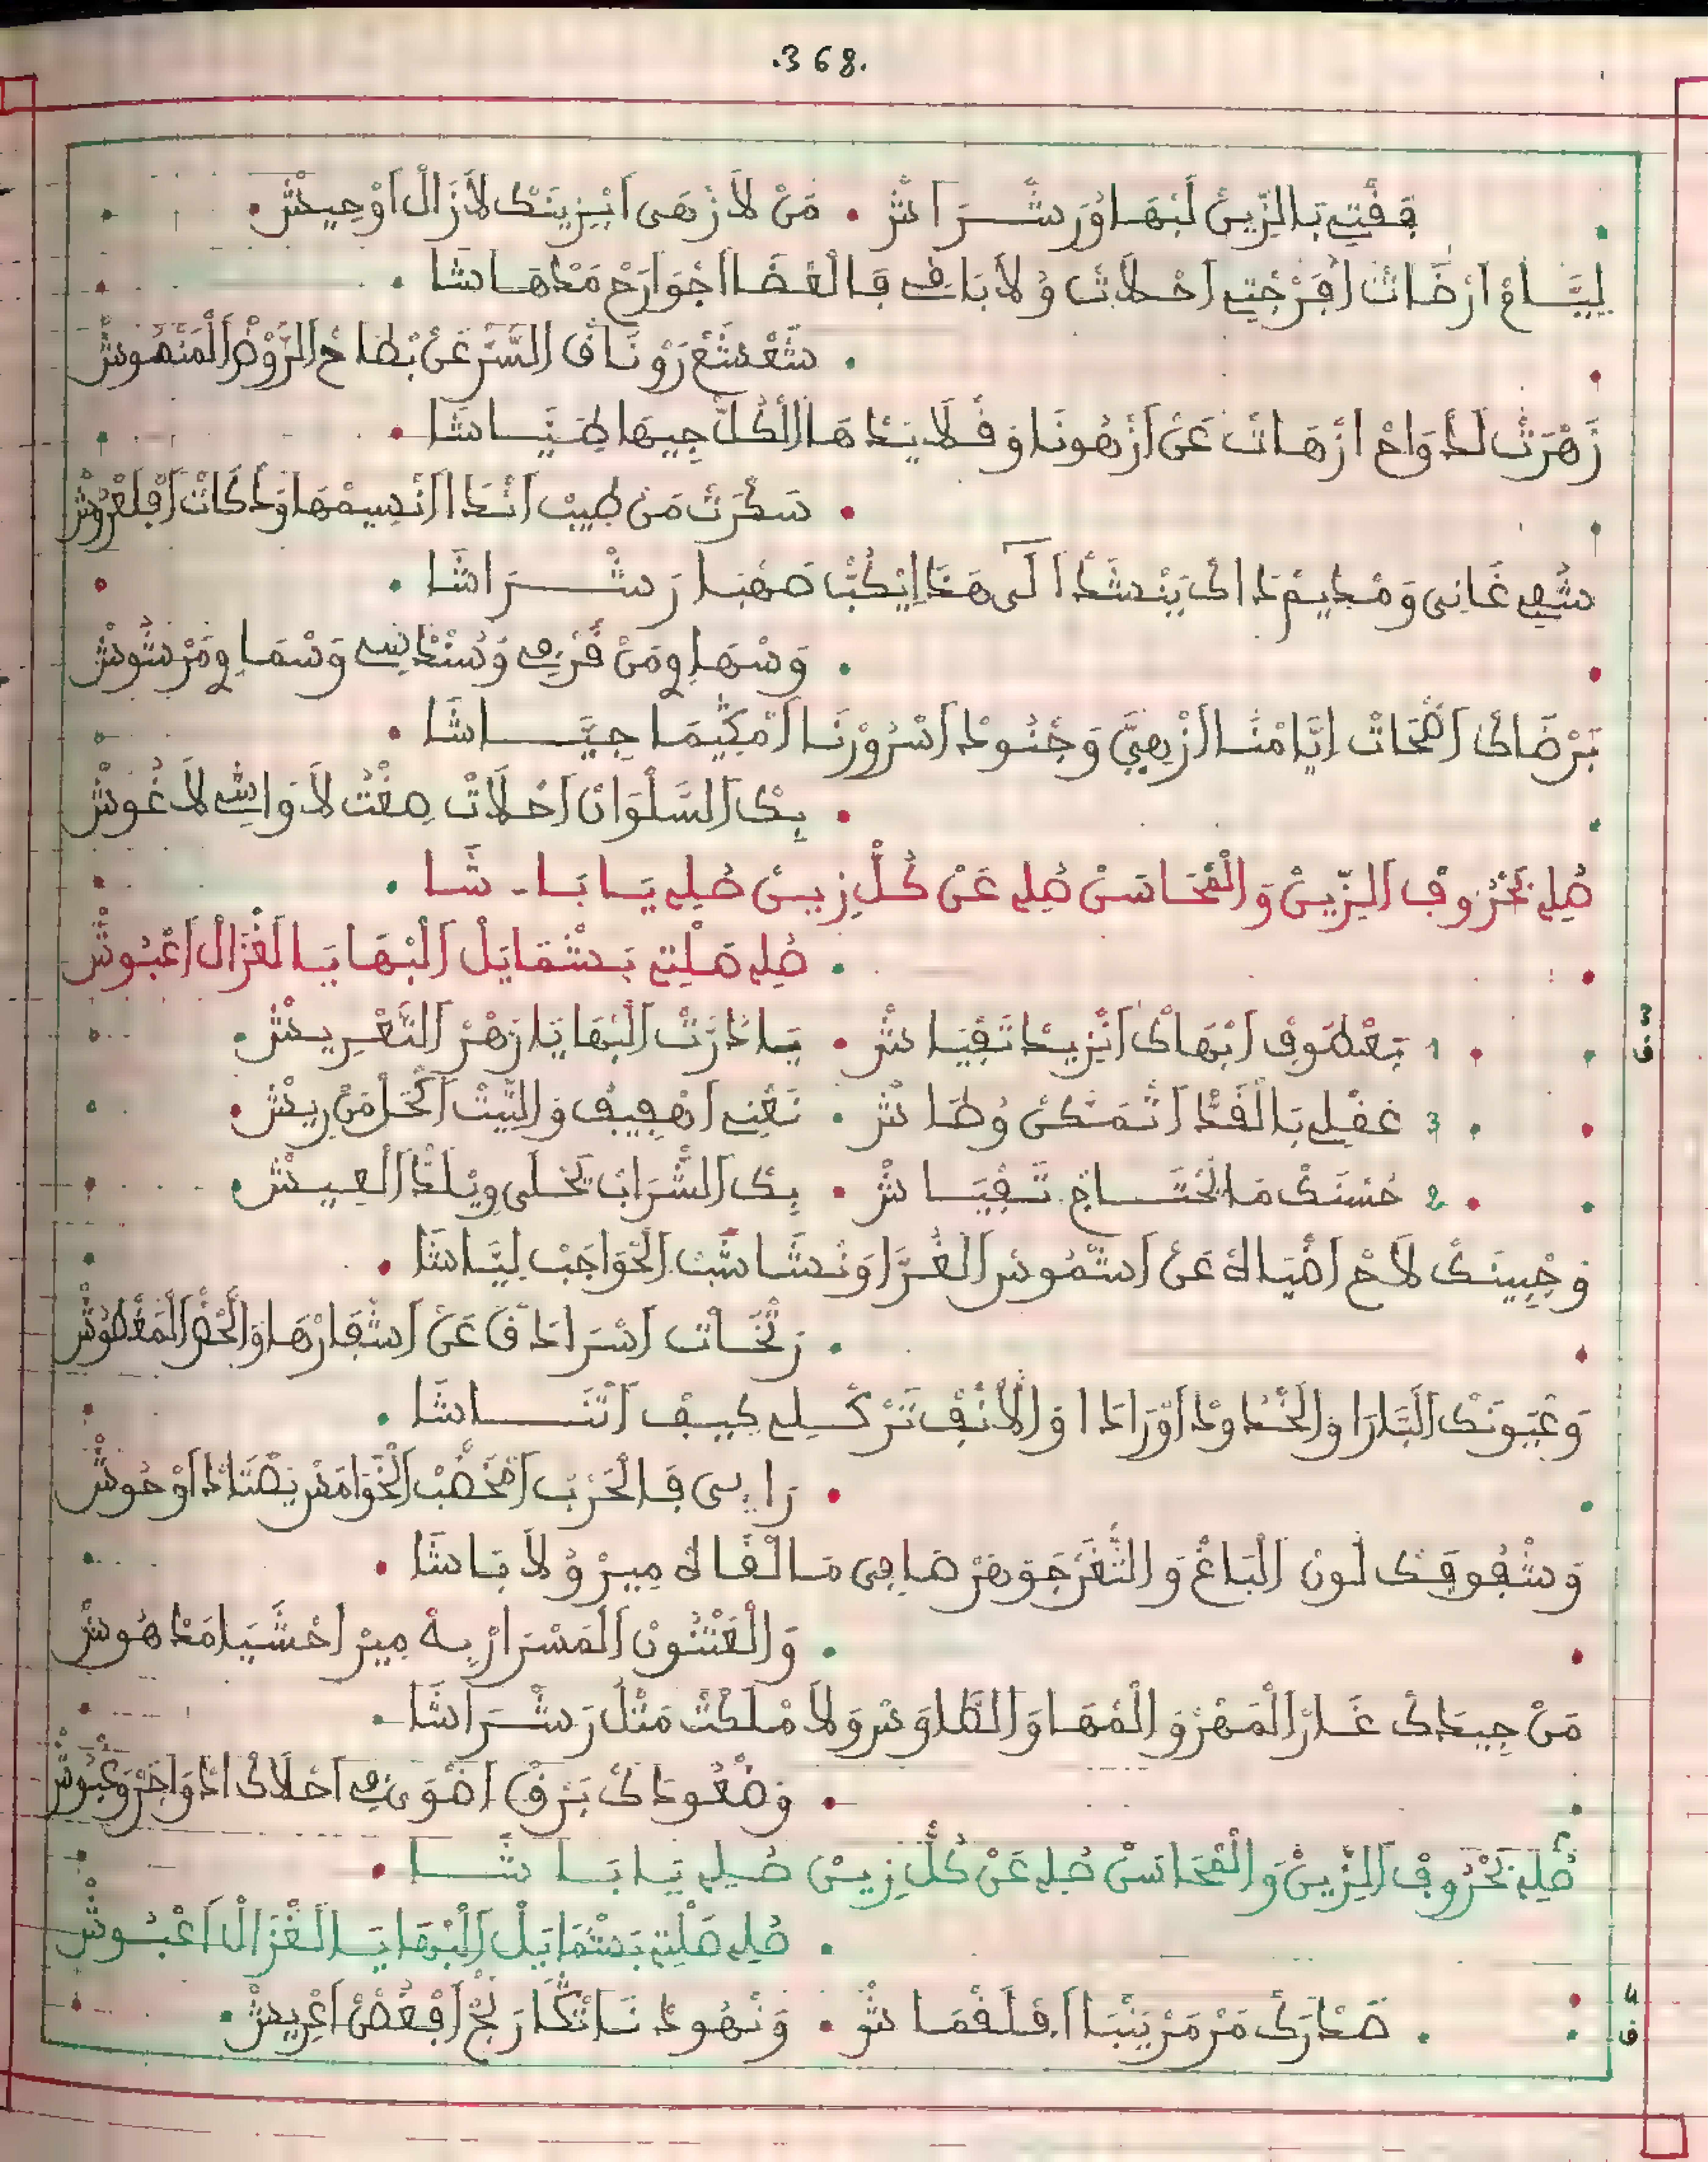 .368.
فقتي بالزين لبها ورشراش • من لا زهى ابزينك لازال اوحيش •
ليام ارضات افرجتي احلات ولا باقي فالعضا اجوارح مدهاشا •
• شعشع رونق السر عن بطاح الروض المنهوش
زهرت لدواح ازهات عن ازهونا وفلا يدها الكل جيها طيّاشا •
• سكرت من طيب اندا انسيمها وذكات افلعروش
شي غاني ومديم ذاك ينشد الى هذا يكب صهبا رشراشا •
• وسهاوي من فربي وسنداسي وسماوي مرشوش
برضاك اضحات ايامنا ازهيّ وجنود اسرورنا امكيما جيّاشا •
• بك السلوان احلات صغت لا واشي لا غوش
صلي بحروف الزين والمحاسن صلي عن كل زين صلي يا باشا •
• صلي صلتي بشمايل البها يا الغزال اعبوش
ف 3
1 • بعطوف ابهاك انزيد تفياش • يا درت البها يا زهر التعريش •
3 • عقلي بالقد اتمكن وطاش • نعني اهفيف والتيت اكحل من ريش •
2 • حسنك ما يحتاج تفياش • بك الشراب يحلى ويلد العيش •
وجبينك لاح اضياه عن اشموس الغرا ونشاشبت الحواجب ليّاشا •
• رخات اسرادق عن اشفارها والحض المغطوش
وعيونك البلرا والخدود اورادا والانف تركلي كيف اتناشا •
• رايس فالحرب امخضب الخوامس يصتاد اوحوش
وشفوفك لون الباغ والثغر جوهر صافي ما لقاه مير ولا باشا •
• والعثنون المسرار به مير احشيا مدهوش
من جيدك غار المهر والمها والطاوس ولا ملكت مثل رشراشا •
• وضعودك برق اضوى في احلاك ادواجر وغبوش
صلي بحروف الزين والمحاسن صلي عن كل زين صلي يا باشا •
• صلي صلتي بشمايل البها يا الغزال اعبوش
ف 4
• صدرك مرمر ينبا افلقماشو • ونهود نانكا رنج افغصن اعريش •